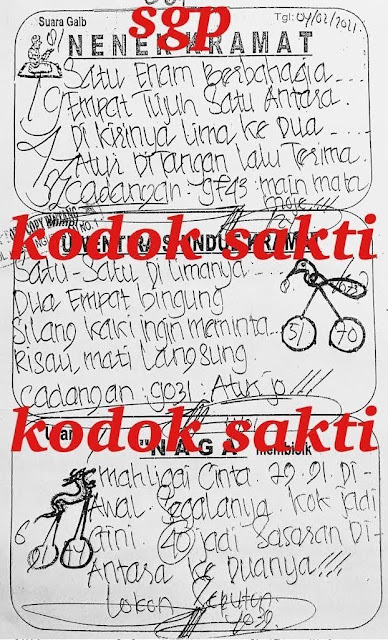 sgp
Suara Gaib
Tgl: 04/02/2021
NENEK KRAMAT
Satu Enam Berbahagia....
Empat Tujuh Satu Antara.
Di Kirinya Lima ke Dua....
Atur Di Tangan Lalu Terima.
Cadangan: 9f43: main mata
kodok sakti
KRAMAT
Satu-Satu Di Limanya....
Dua Empat Bingung
Silang kaki ingin meminta...
Risau, mati Langsung.
Cadangan: 9031: Atur jo!!!
51
70
kodok sakti
"NAGA"
membisik
mahligai Cinta. 79 21. Di-
Awal Segalanya kok jadi
Gini. 40 jadi Sasaran Di-
Antara Ke Duanya!!!